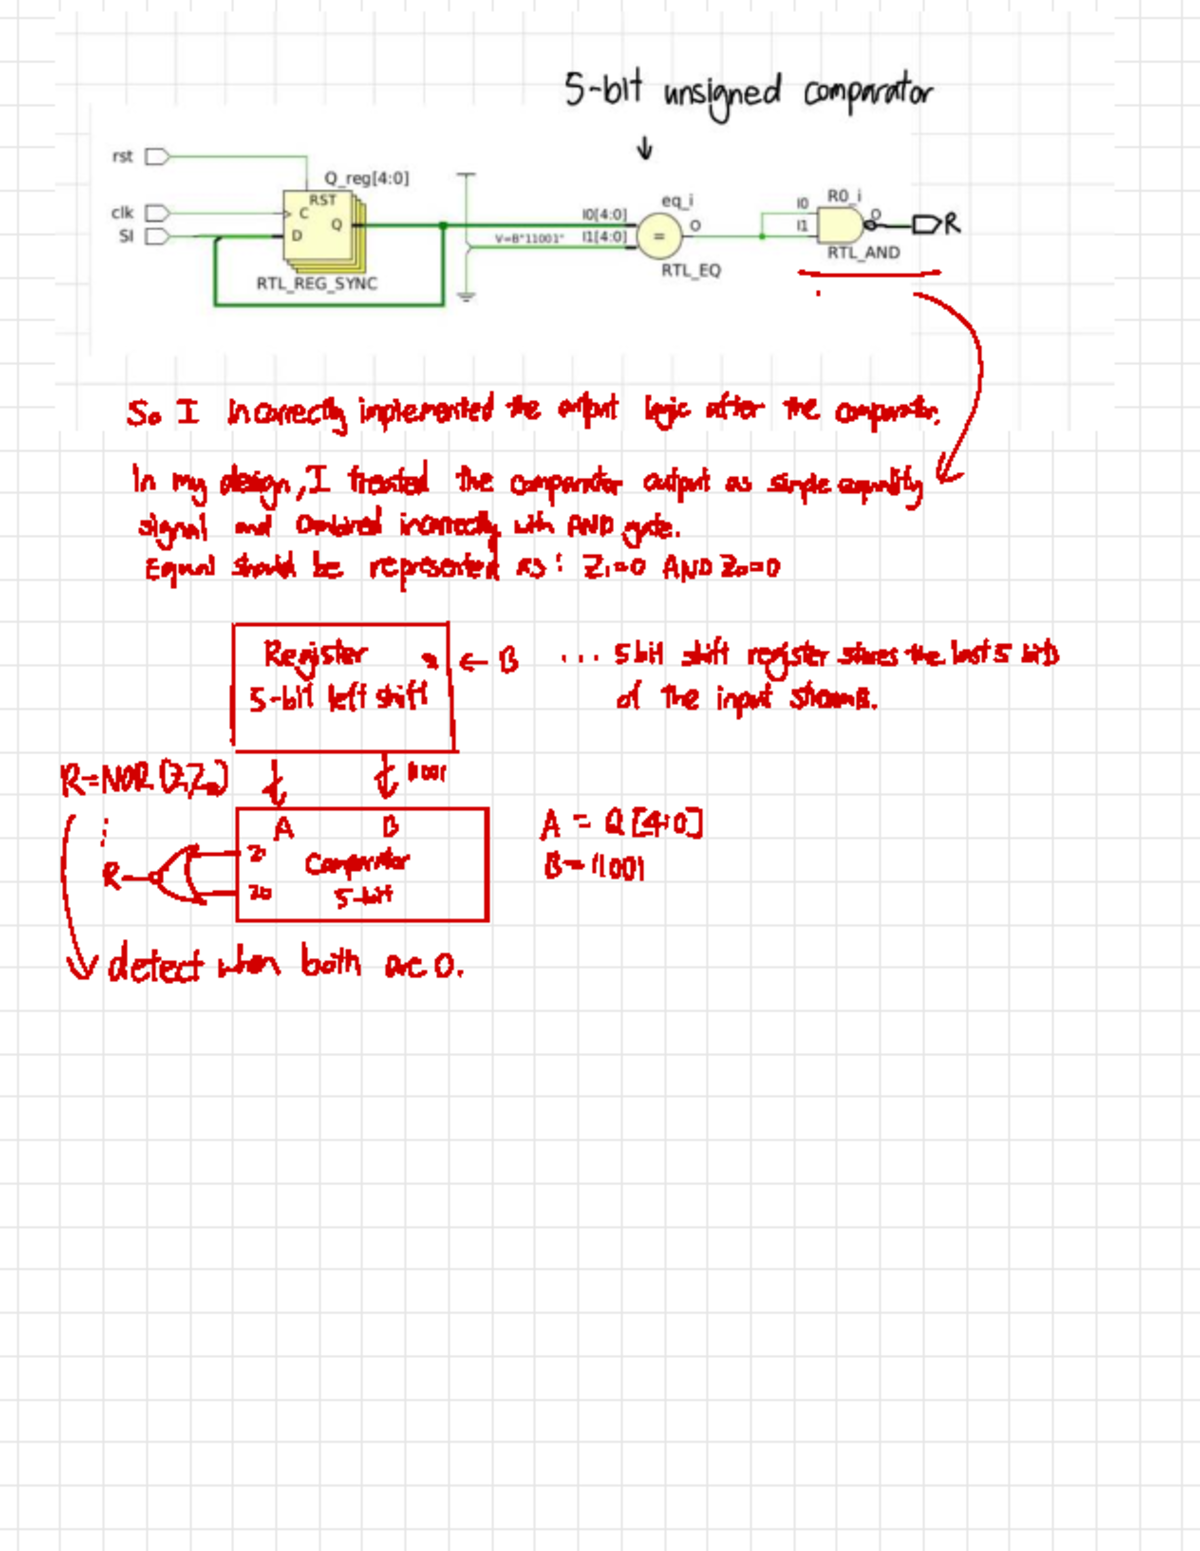 5-bit unsigned comparator
rst
Q_reg[4:0]
RST
clk
C
Q
SI
D
RTL_REG_SYNC
V=B"11001"
I0[4:0]
I1[4:0]
eq_i
=
O
RTL_EQ
R0_i
I0
I1
O
RTL_AND
R
So I incorrectly implemented the output logic after the comparator.
In my design, I treated the comparator output as simple equality
signal and combined incorrectly with AND gate.
Equal should be represented as: Z1=0 AND Z0=0
Register
5-bit left shift
← B
... 5 bit shift register stores the last 5 bits
of the input
R=NOR
11001
A B
Comparator
5-bit
Z1
Z0
R
A = Q[4:0]
B=11001
detect when both are 0.